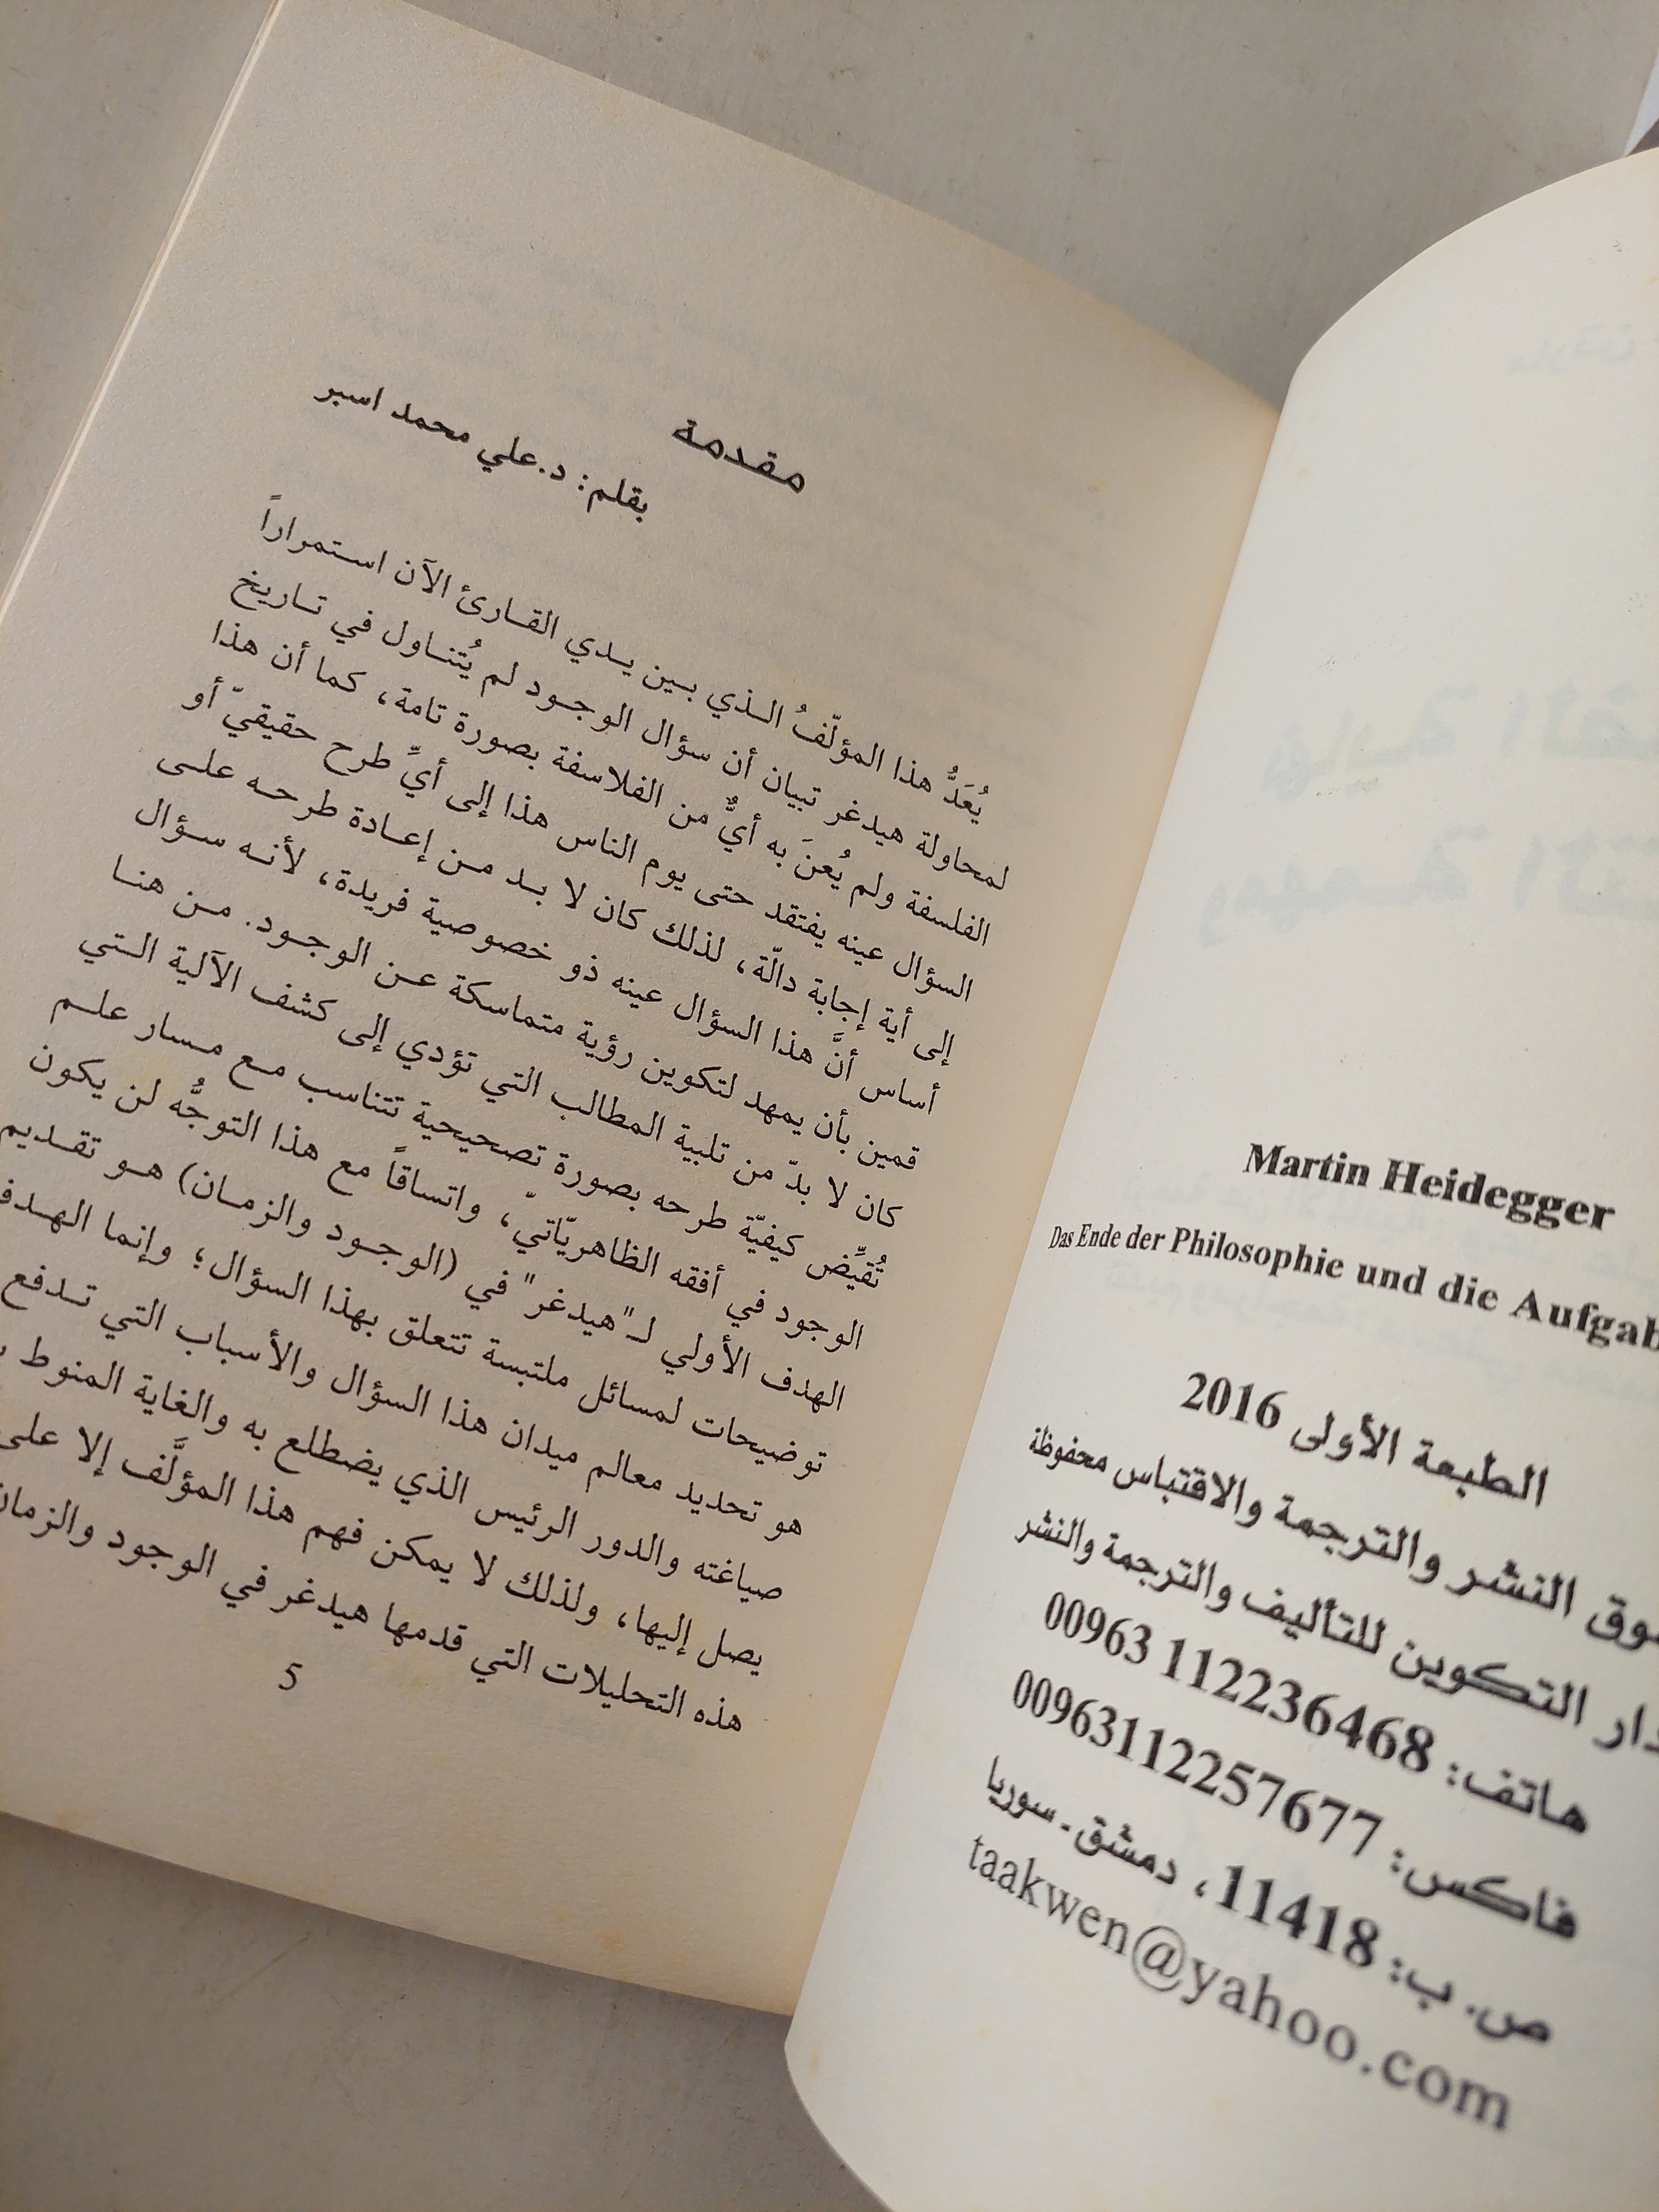 Martin Heidegger
Das Ende der Philosophie und die Aufgab
الطبعة الأولى 2016
النشر والترجمة والاقتباس محفوظة
دار التكوين للتأليف والترجمة والنشر
هاتف: 112236468 00963
فاكس: 00963112257677
ص. ب: 11418، دمشق ـ سوريا
taakwen@yahoo.com
مقدمة
بقلم: د.علي محمد اسبر
يُعَدُّ هذا المؤلّفُ الذي بين يدي القارئ الآن استمراراً
لمحاولة هيدغر تبيان أن سؤال الوجود لم يُتناول في تاريخ
الفلسفة ولم يُعنَ به أيٌّ من الفلاسفة بصورة تامة، كما أن هذا
السؤال عينه يفتقد حتى يوم الناس هذا إلى أيِّ طرح حقيقيّ أو
إلى أية إجابة دالّة، لذلك كان لا بد من إعادة طرحه على
أساس أنَّ هذا السؤال عينه ذو خصوصية فريدة، لأنه سؤال
قمين بأن يمهد لتكوين رؤية متماسكة عن الوجود. من هنا
كان لا بدّ من تلبية المطالب التي تؤدي إلى كشف الآلية التي
تُقيِّض كيفيّة طرحه بصورة تصحيحية تتناسب مع مسار علم
الوجود في أفقه الظاهريّاتيّ، واتساقاً مع هذا التوجُّه لن يكون
الهدف الأولي لـ"هيدغر" في (الوجود والزمان) هو تقديم
توضيحات لمسائل ملتبسة تتعلق بهذا السؤال؛ وإنما الهدف
هو تحديد معالم ميدان هذا السؤال والأسباب التي تدفع
صياغته والدور الرئيس الذي يضطلع به والغاية المنوط
يصل إليها، ولذلك لا يمكن فهم هذا المؤلَّف إلا على
هذه التحليلات التي قدمها هيدغر في الوجود والزمان
5